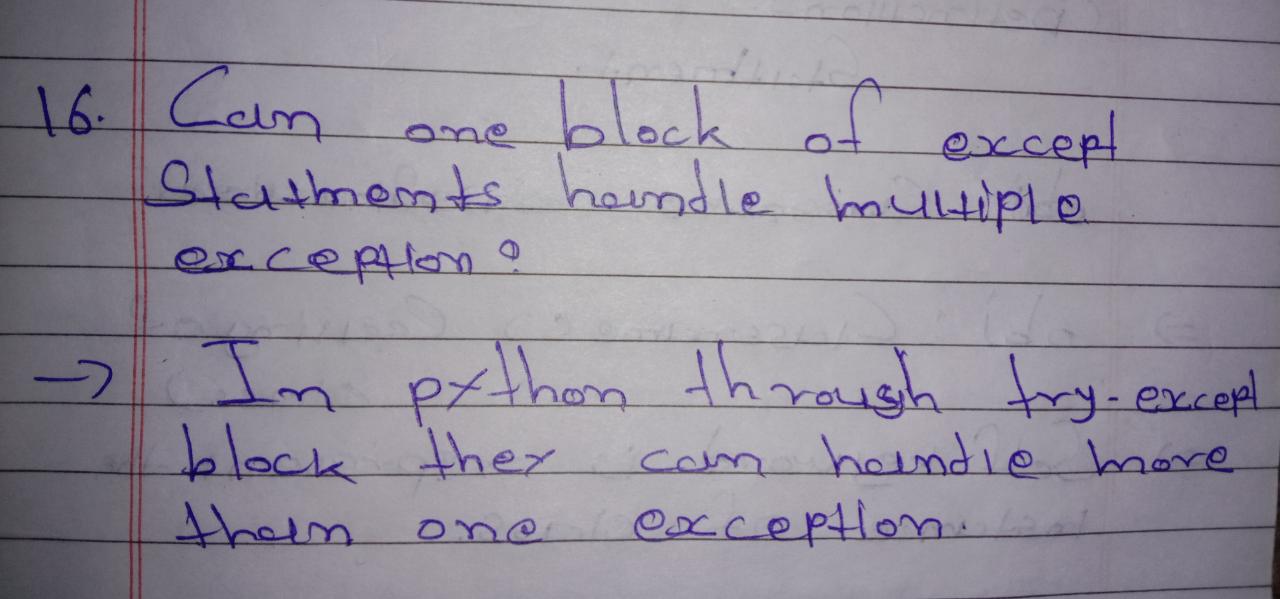 16. Can one block of except
Statments handle multiple
exception?
→ In python through try-except
block they can handle more
than one exception.